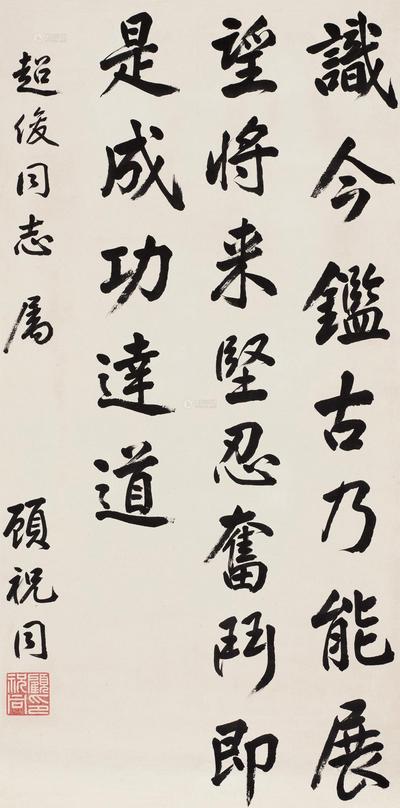 識今鑑古乃能展
望將来堅忍奮鬥即
是成功達道
超俊同志属
顧祝同
顧祝同印